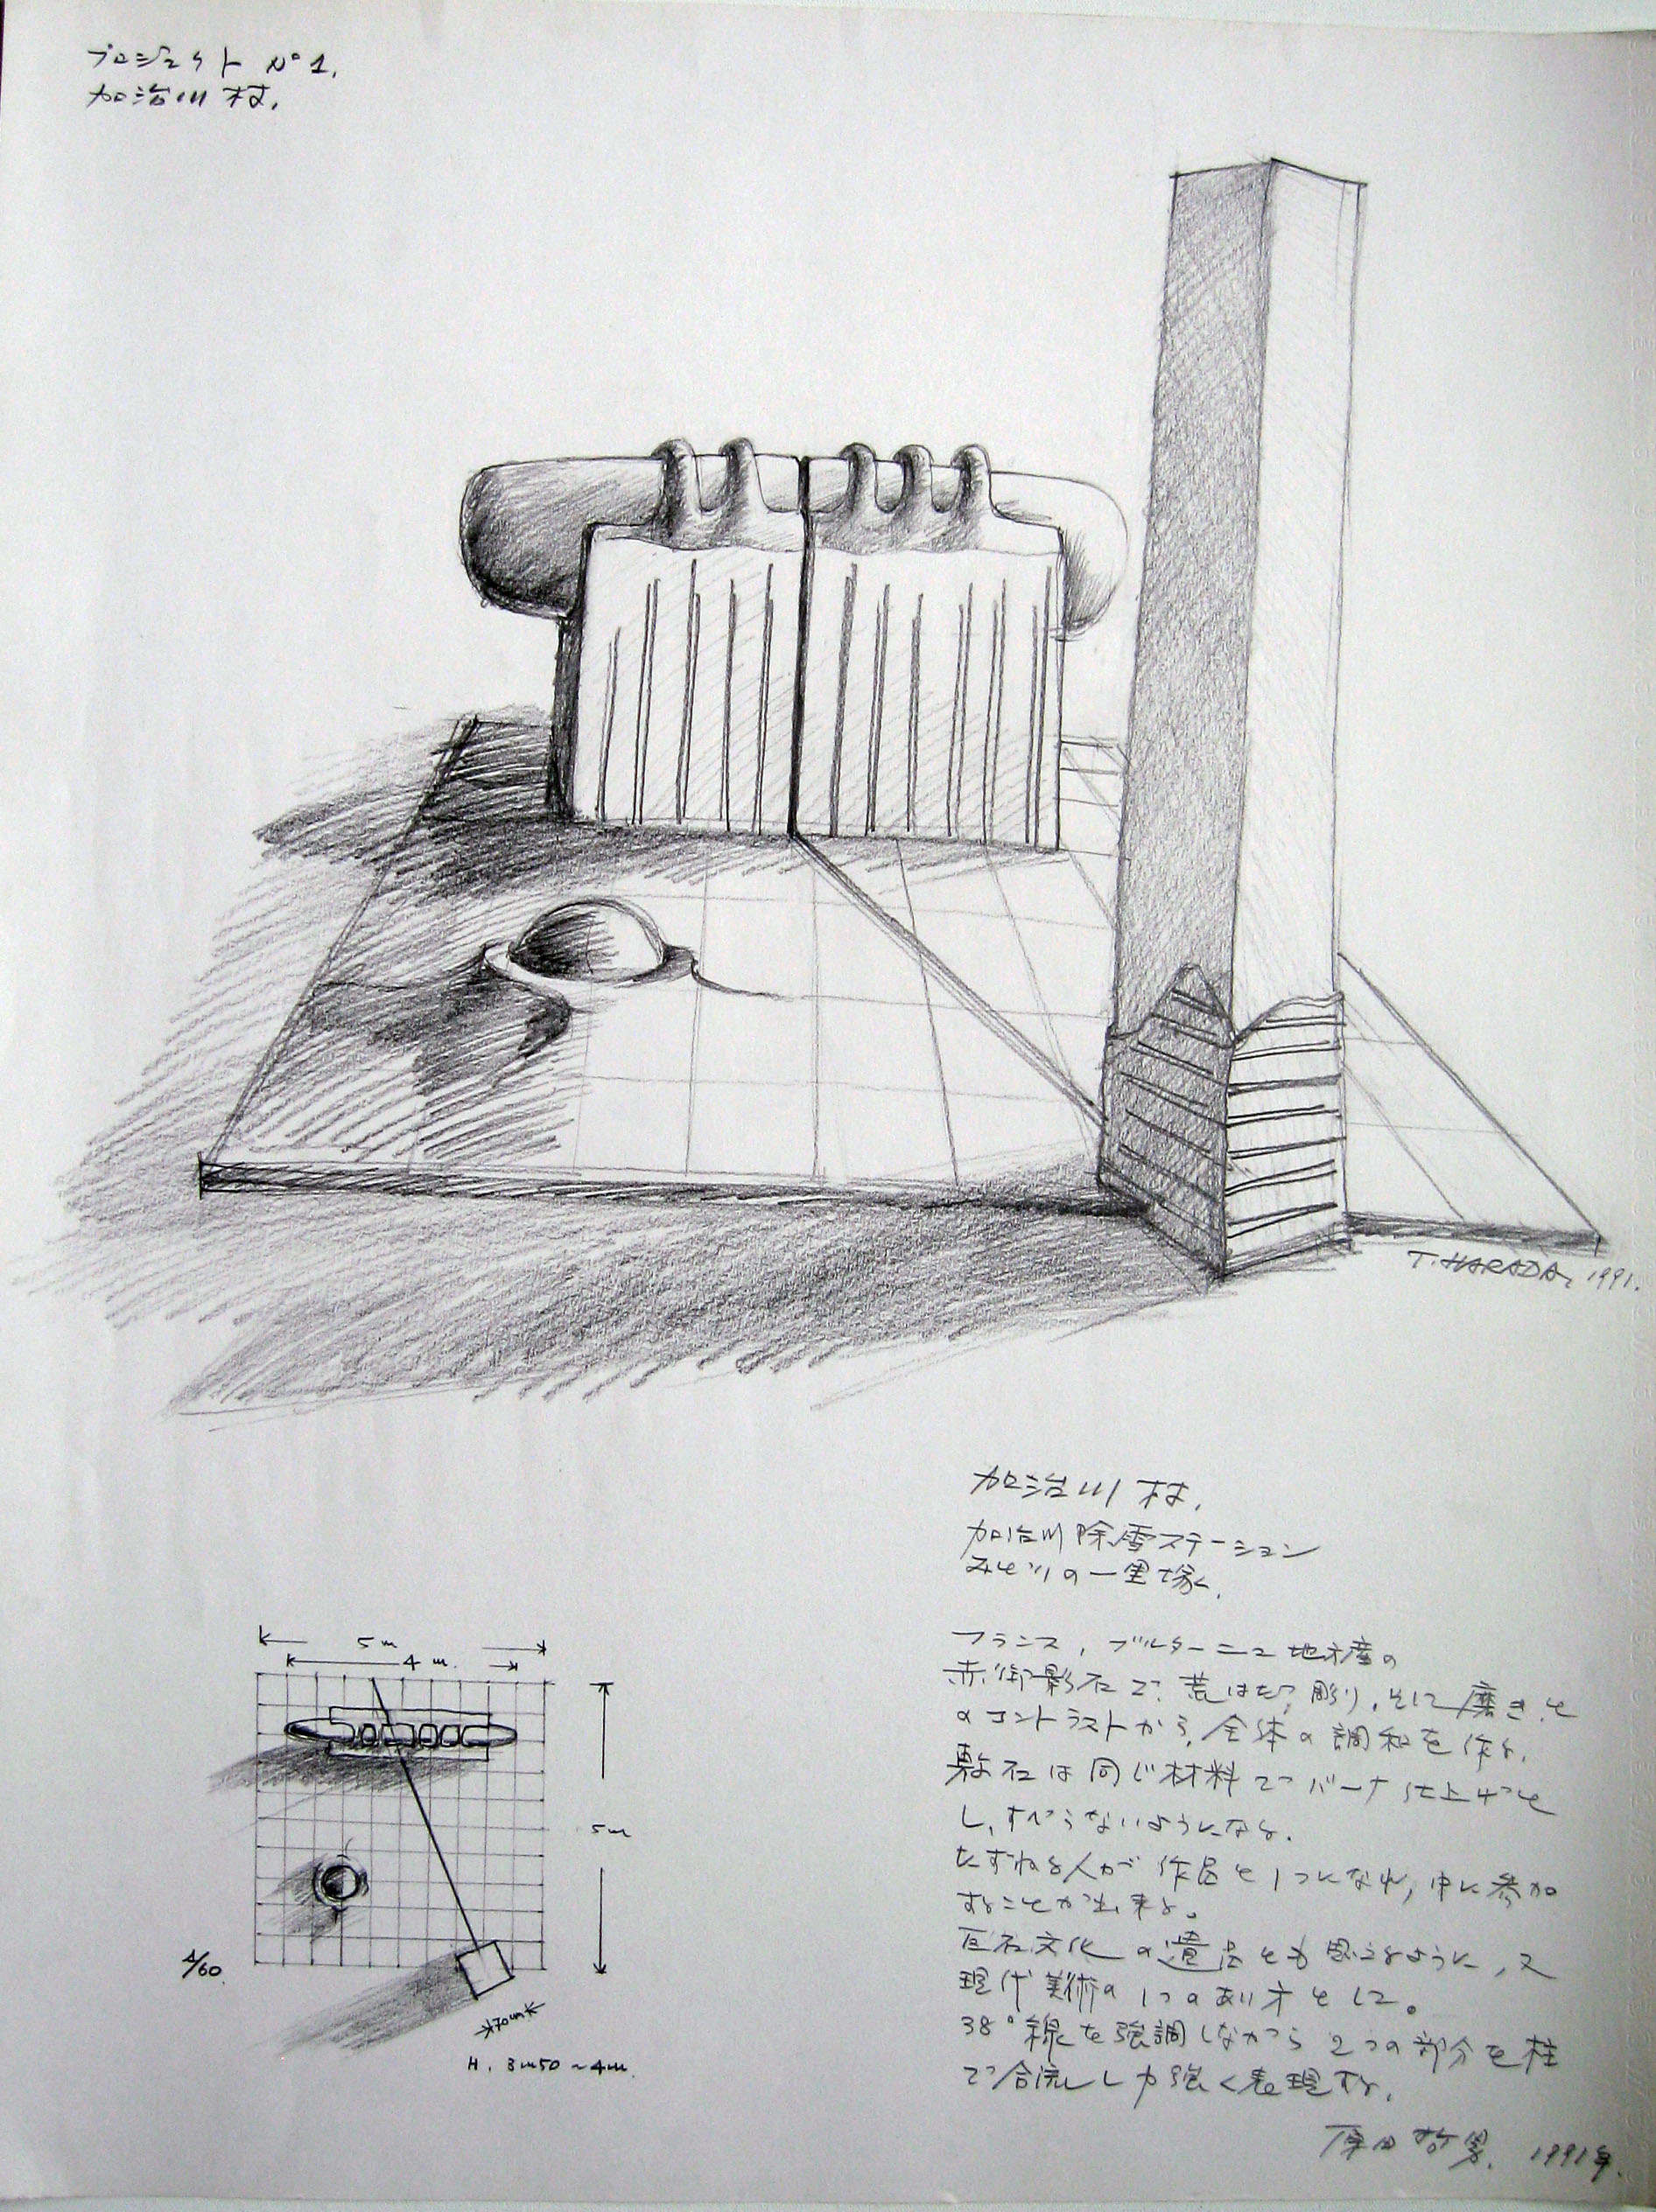 プロジェクト Nº 1.
加治川村.
T. HARADA, 1991.
加治川村.
加治川除雪ステーション
みどりの一里塚.
フランス, ブルターニュ地方産の
赤御影石で. 荒はだ, 彫り, そして磨きと
のコントラストから, 全体の調和を作る.
敷石は同じ材料でバーナ仕上げと
し, すべらないようになる.
たずねる人が作品と1つになれ, 中に参加
することが出来る。
巨石文化の遺品とも思えるように, 又
現代美術の1つのあり方として。
38°線を強調しながら2つの部分を柱
で合流し力強く表現する.
原田哲男. 1991年.
5m
4m.
5m
1/60.
70cm
H. 3m50~4m.